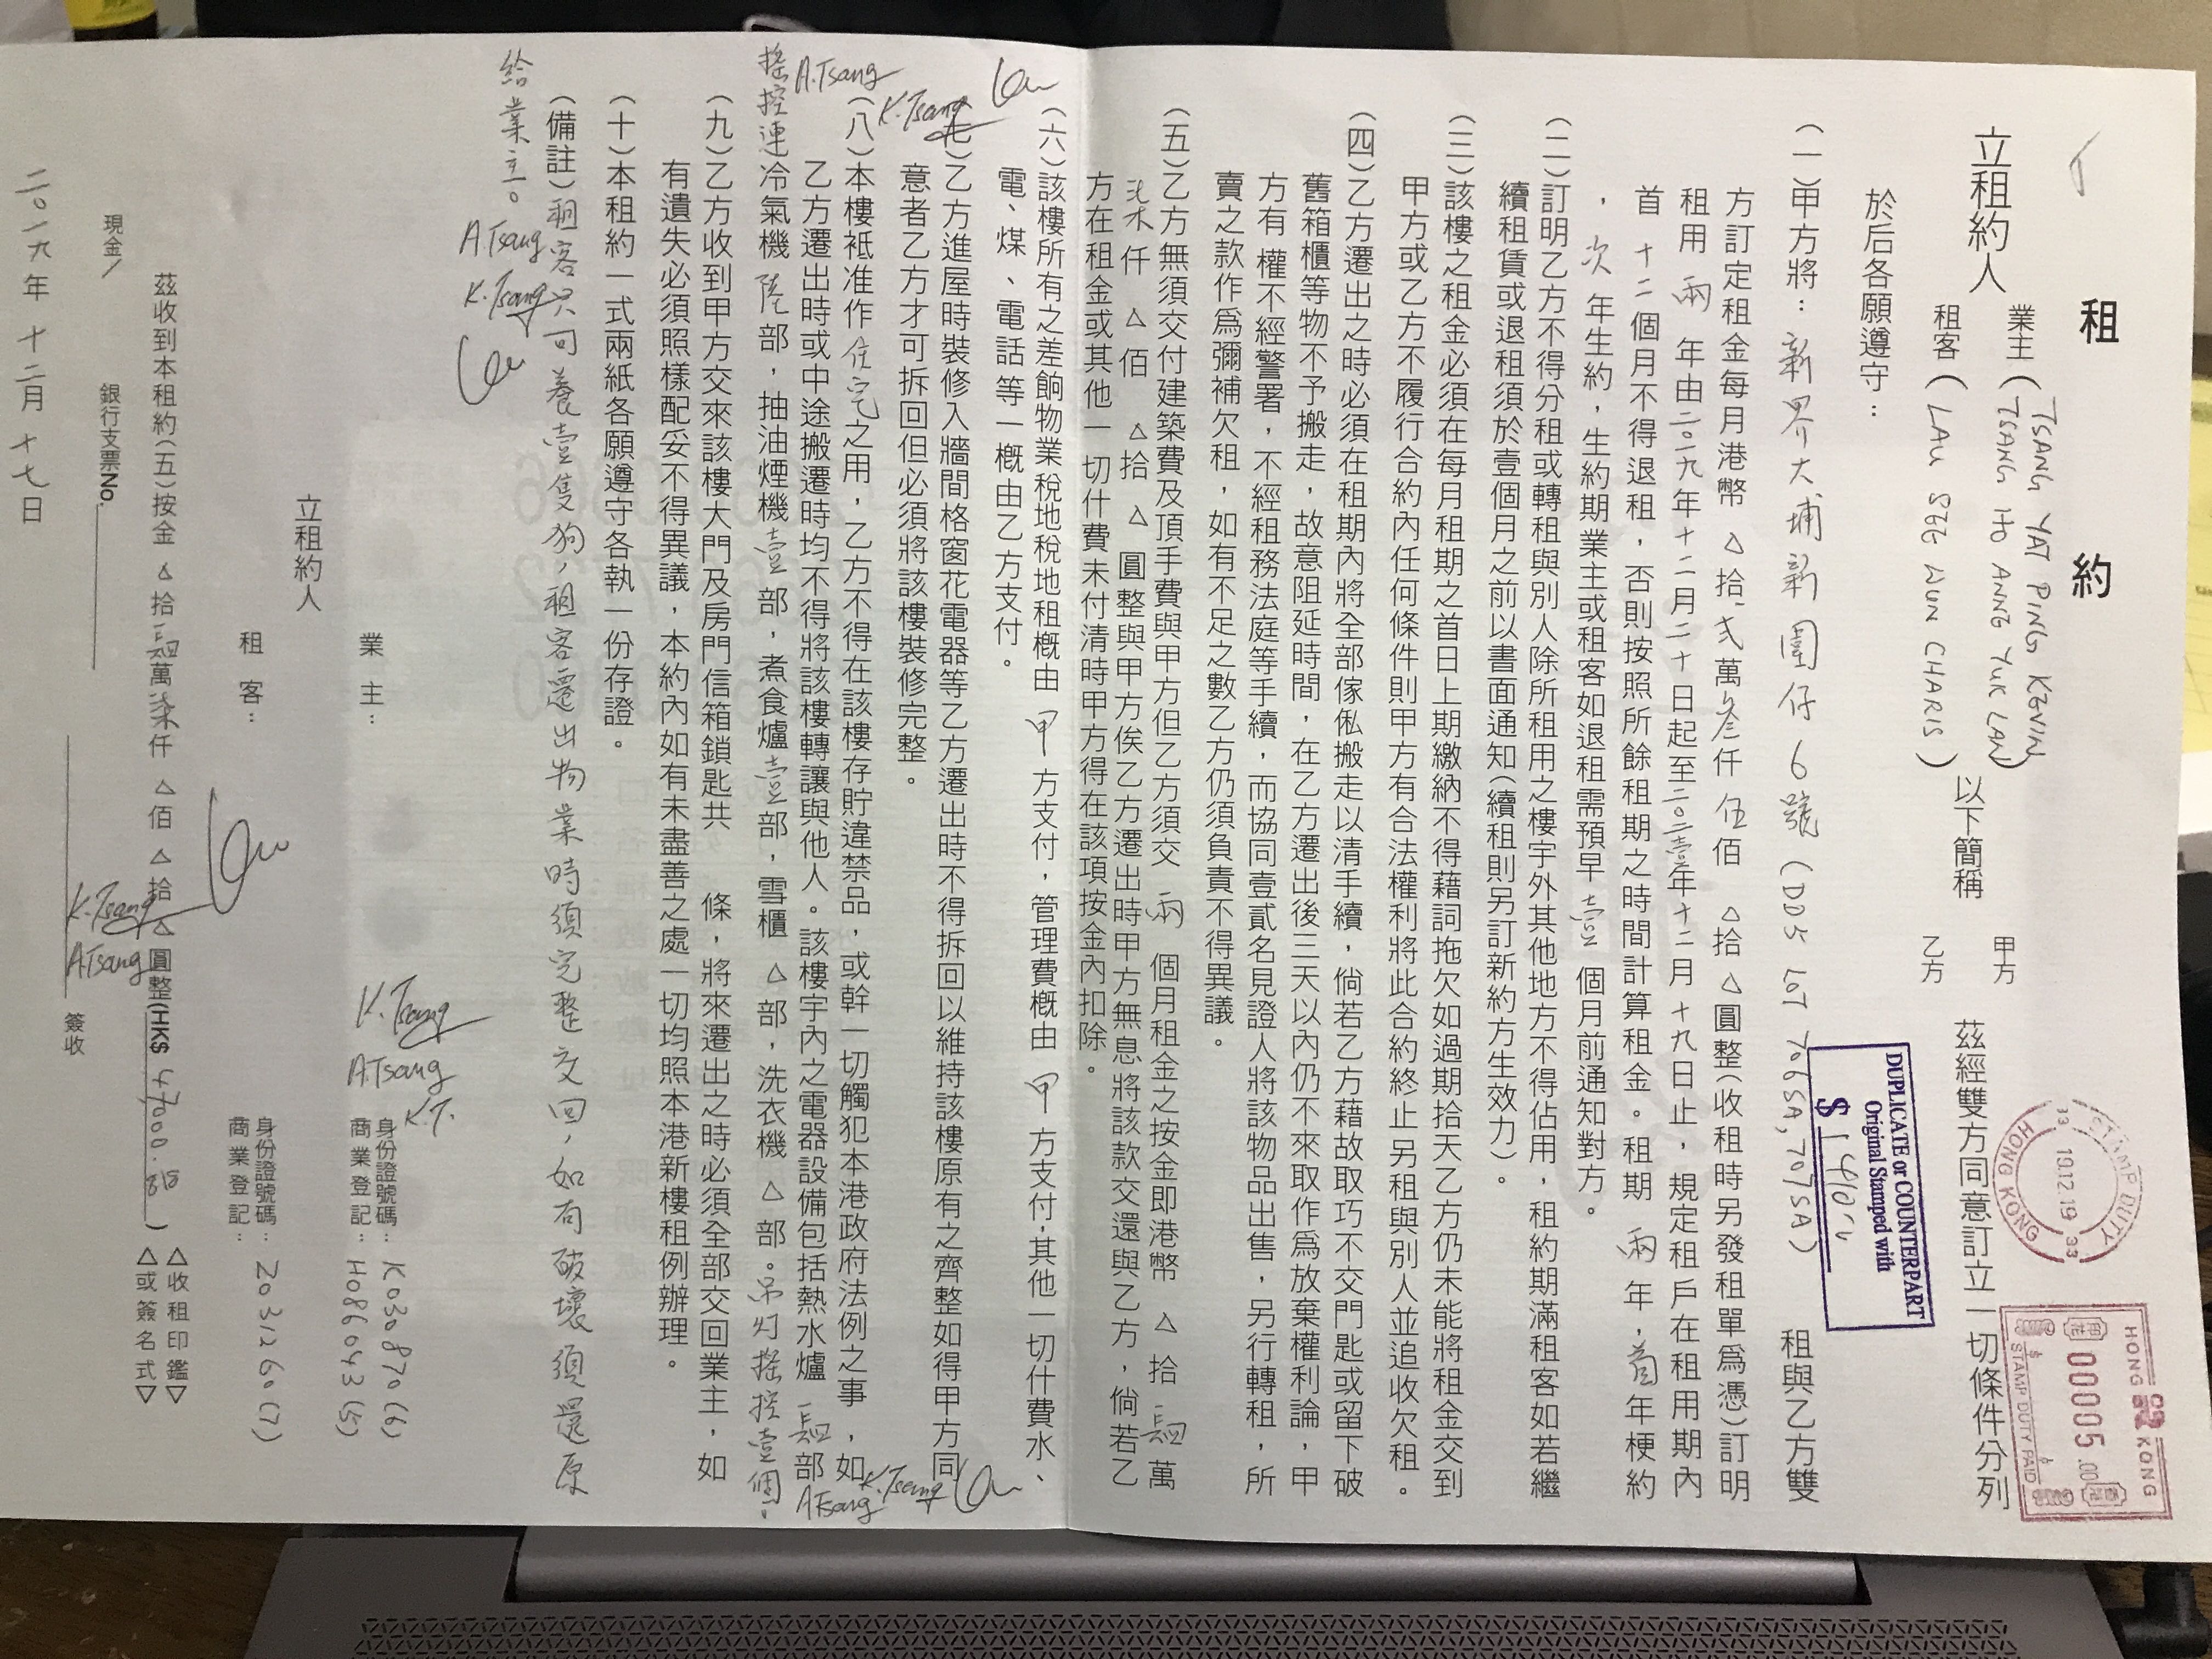 租約
立租約人
業主(TSANG YAT PING KEVIN
TSANG HO ANNG YUK LAN)
租客(LAU SEE WUN CHARIS)
以下簡稱
甲方
乙方
茲經雙方同意訂立一切條件分列
於后各願遵守：
(一)甲方將：新界大埔新圍仔6號(DD5 LOT 706SA, 707SA) 租與乙方雙
方訂定租金每月港幣 △拾貳萬叁仟伍佰 △拾 △圓整(收租時另發租單爲憑)訂明
租用 兩 年由二〇一九年十二月二十日起至二〇二壹年十二月十九日止，規定租戶在租用期內
首 十二個月不得退租，否則按照所餘租期之時間計算租金。租期 兩年，首年梗約
，次年生約，生約期業主或租客如退租需預早 壹 個月前通知對方。
(二)訂明乙方不得分租或轉租與別人除所租用之樓宇外其他地方不得佔用，租約期滿租客如若繼
續租賃或退租須於壹個月之前以書面通知(續租則另訂新約方生效力)。
(三)該樓之租金必須在每月租期之首日上期繳納不得藉詞拖欠如過期拾天乙方仍未能將租金交到
甲方或乙方不履行合約內任何條件則甲方有合法權利將此合約終止另租與別人並追收欠租。
(四)乙方遷出之時必須在租期內將全部傢俬搬走以清手續，倘若乙方藉故取巧不交門匙或留下破
舊箱櫃等物不予搬走，故意阻延時間，在乙方遷出後三天以內仍不來取作爲放棄權利論，甲
方有權不經警署，不經租務法庭等手續，而協同壹貳名見證人將該物品出售，另行轉租，所
賣之款作爲彌補欠租，如有不足之數乙方仍須負責不得異議。
(五)乙方無須交付建築費及頂手費與甲方但乙方須交 兩 個月租金之按金即港幣 △ 拾 肆 萬
柒仟 △ 佰 △拾 △ 圓整與甲方俟乙方遷出時甲方無息將該款交還與乙方，倘若乙
方在租金或其他一切什費未付清時甲方得在該項按金內扣除。
(六)該樓所有之差餉物業稅地稅地租概由 甲 方支付，管理費概由 甲 方支付，其他一切什費水、
電、煤、電話等一概由乙方支付。
(七)乙方進屋時裝修入牆間格窗花電器等乙方遷出時不得拆回以維持該樓原有之齊整如得甲方同
意者乙方才可拆回但必須將該樓裝修完整。
(八)本樓衹准作住宅之用，乙方不得在該樓存貯違禁品，或幹一切觸犯本港政府法例之事，如
乙方遷出時或中途搬遷時均不得將該樓轉讓與他人。該樓宇內之電器設備包括熱水爐 肆 部
搖控連冷氣機 陸 部，抽油煙機 壹 部，煮食爐 壹 部，雪櫃 △ 部，洗衣機 △ 部。吊灯搖控壹個。
A.Tsang K.Tsang Lau
A.Tsang K.Tsang Lau
(九)乙方收到甲方交來該樓大門及房門信箱鎖匙共 條，將來遷出之時必須全部交回業主，如
有遺失必須照樣配妥不得異議，本約內如有未盡善之處一切均照本港新樓租例辦理。
(十)本租約一式兩紙各願遵守各執一份存證。
(備註)租客只可養壹隻狗，租客遷出物業時須完整交回，如有破壞須還原
給業主。
A.Tsang K.Tsang Lau
立租約人
業主：
K.Tsang
A.Tsang K.T.
身份證號碼：K030870(6)
商業登記：H086043(5)
租客：
Lau
身份證號碼：Z031260(7)
商業登記：
茲收到本租約(五)按金 △拾肆萬柒仟 △佰 △拾 △圓整(HK$ 47000.00)
△收租印鑑▽
△或簽名式▽
現金/
銀行支票No.
K.Tsang
A.Tsang
簽收
二〇一九年 十二月 十七日
DUPLICATE or COUNTERPART
Original Stamped with
$ 1410/-
STAMP DUTY
33 19.12.19 33
HONG KONG
HONG KONG
香港
00005.00
STAMP DUTY PAID